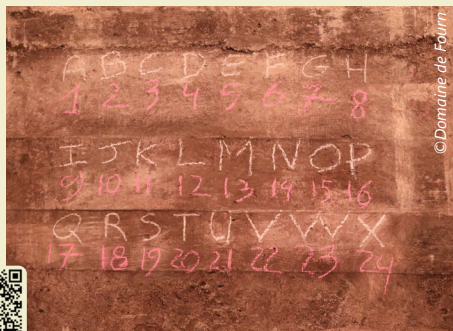 A B C D E F G H
1 2 3 4 5 6 7 8
I J K L M N O P
9 10 11 12 13 14 15 16
Q R S T U V W X
17 18 19 20 21 22 23 24
©Domaine de Fourn